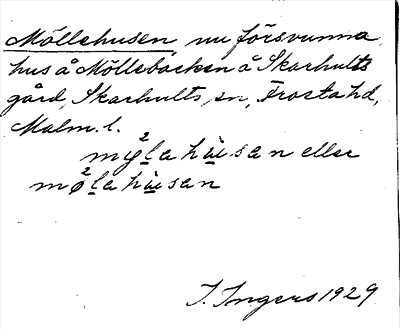 Möllehusen, nu försvunna
hus å Möllebacken å Skarhults
gård, Skarhults sn, Frosta hd,
Malm. l.
mø²lahu̇san eller
mø²lahu̇san
I. Ingers 1929